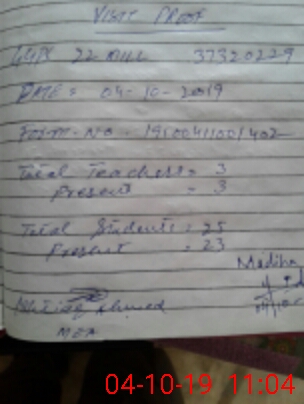 VISIT PROOF
GGPS 22 MILL 37320229
DATE = 04-10-2019
Form-No - 19500411001402
Total Teachers = 3
Present = 3
Total Students = 25
Present = 23
Madiha
Ahmed
MEA
04-10-19 11:04